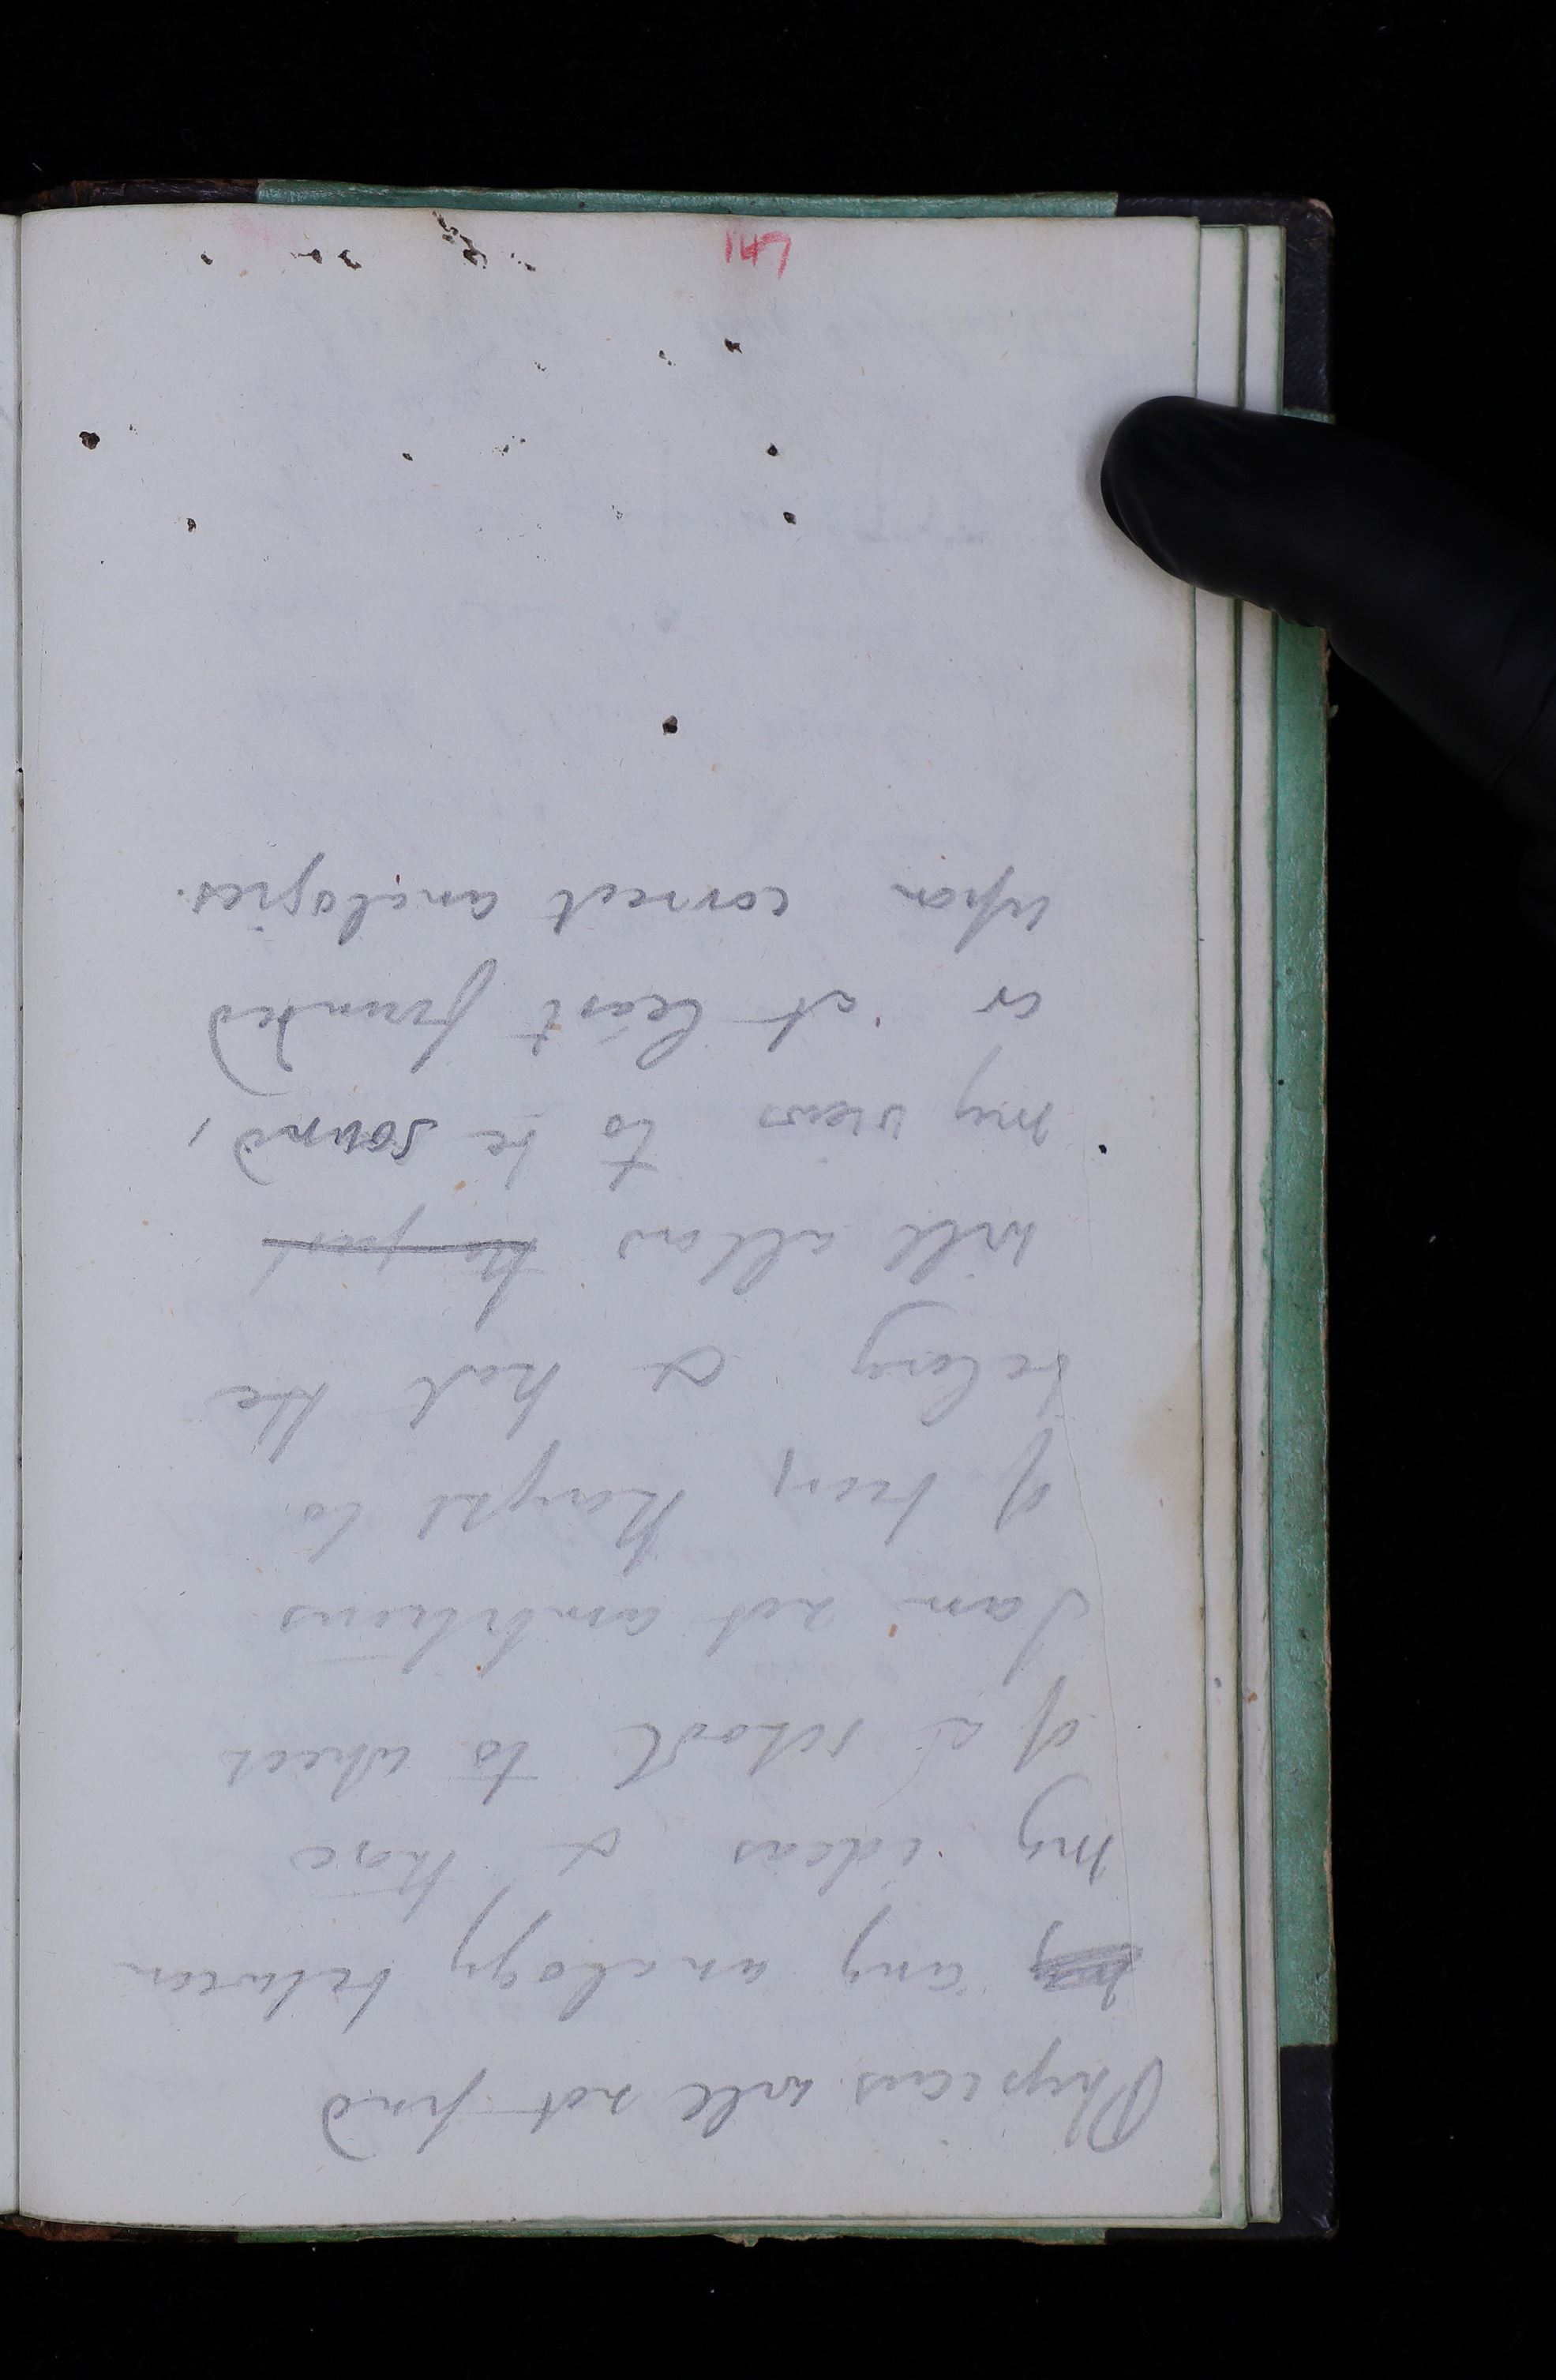 147
Physicians will not find
my any analogy between
my ideas & those
of a school to which
I am not ambitious
of being thought to
belong & that the
will allow the just
my views to be sound,
or at least founded
upon correct analogies.